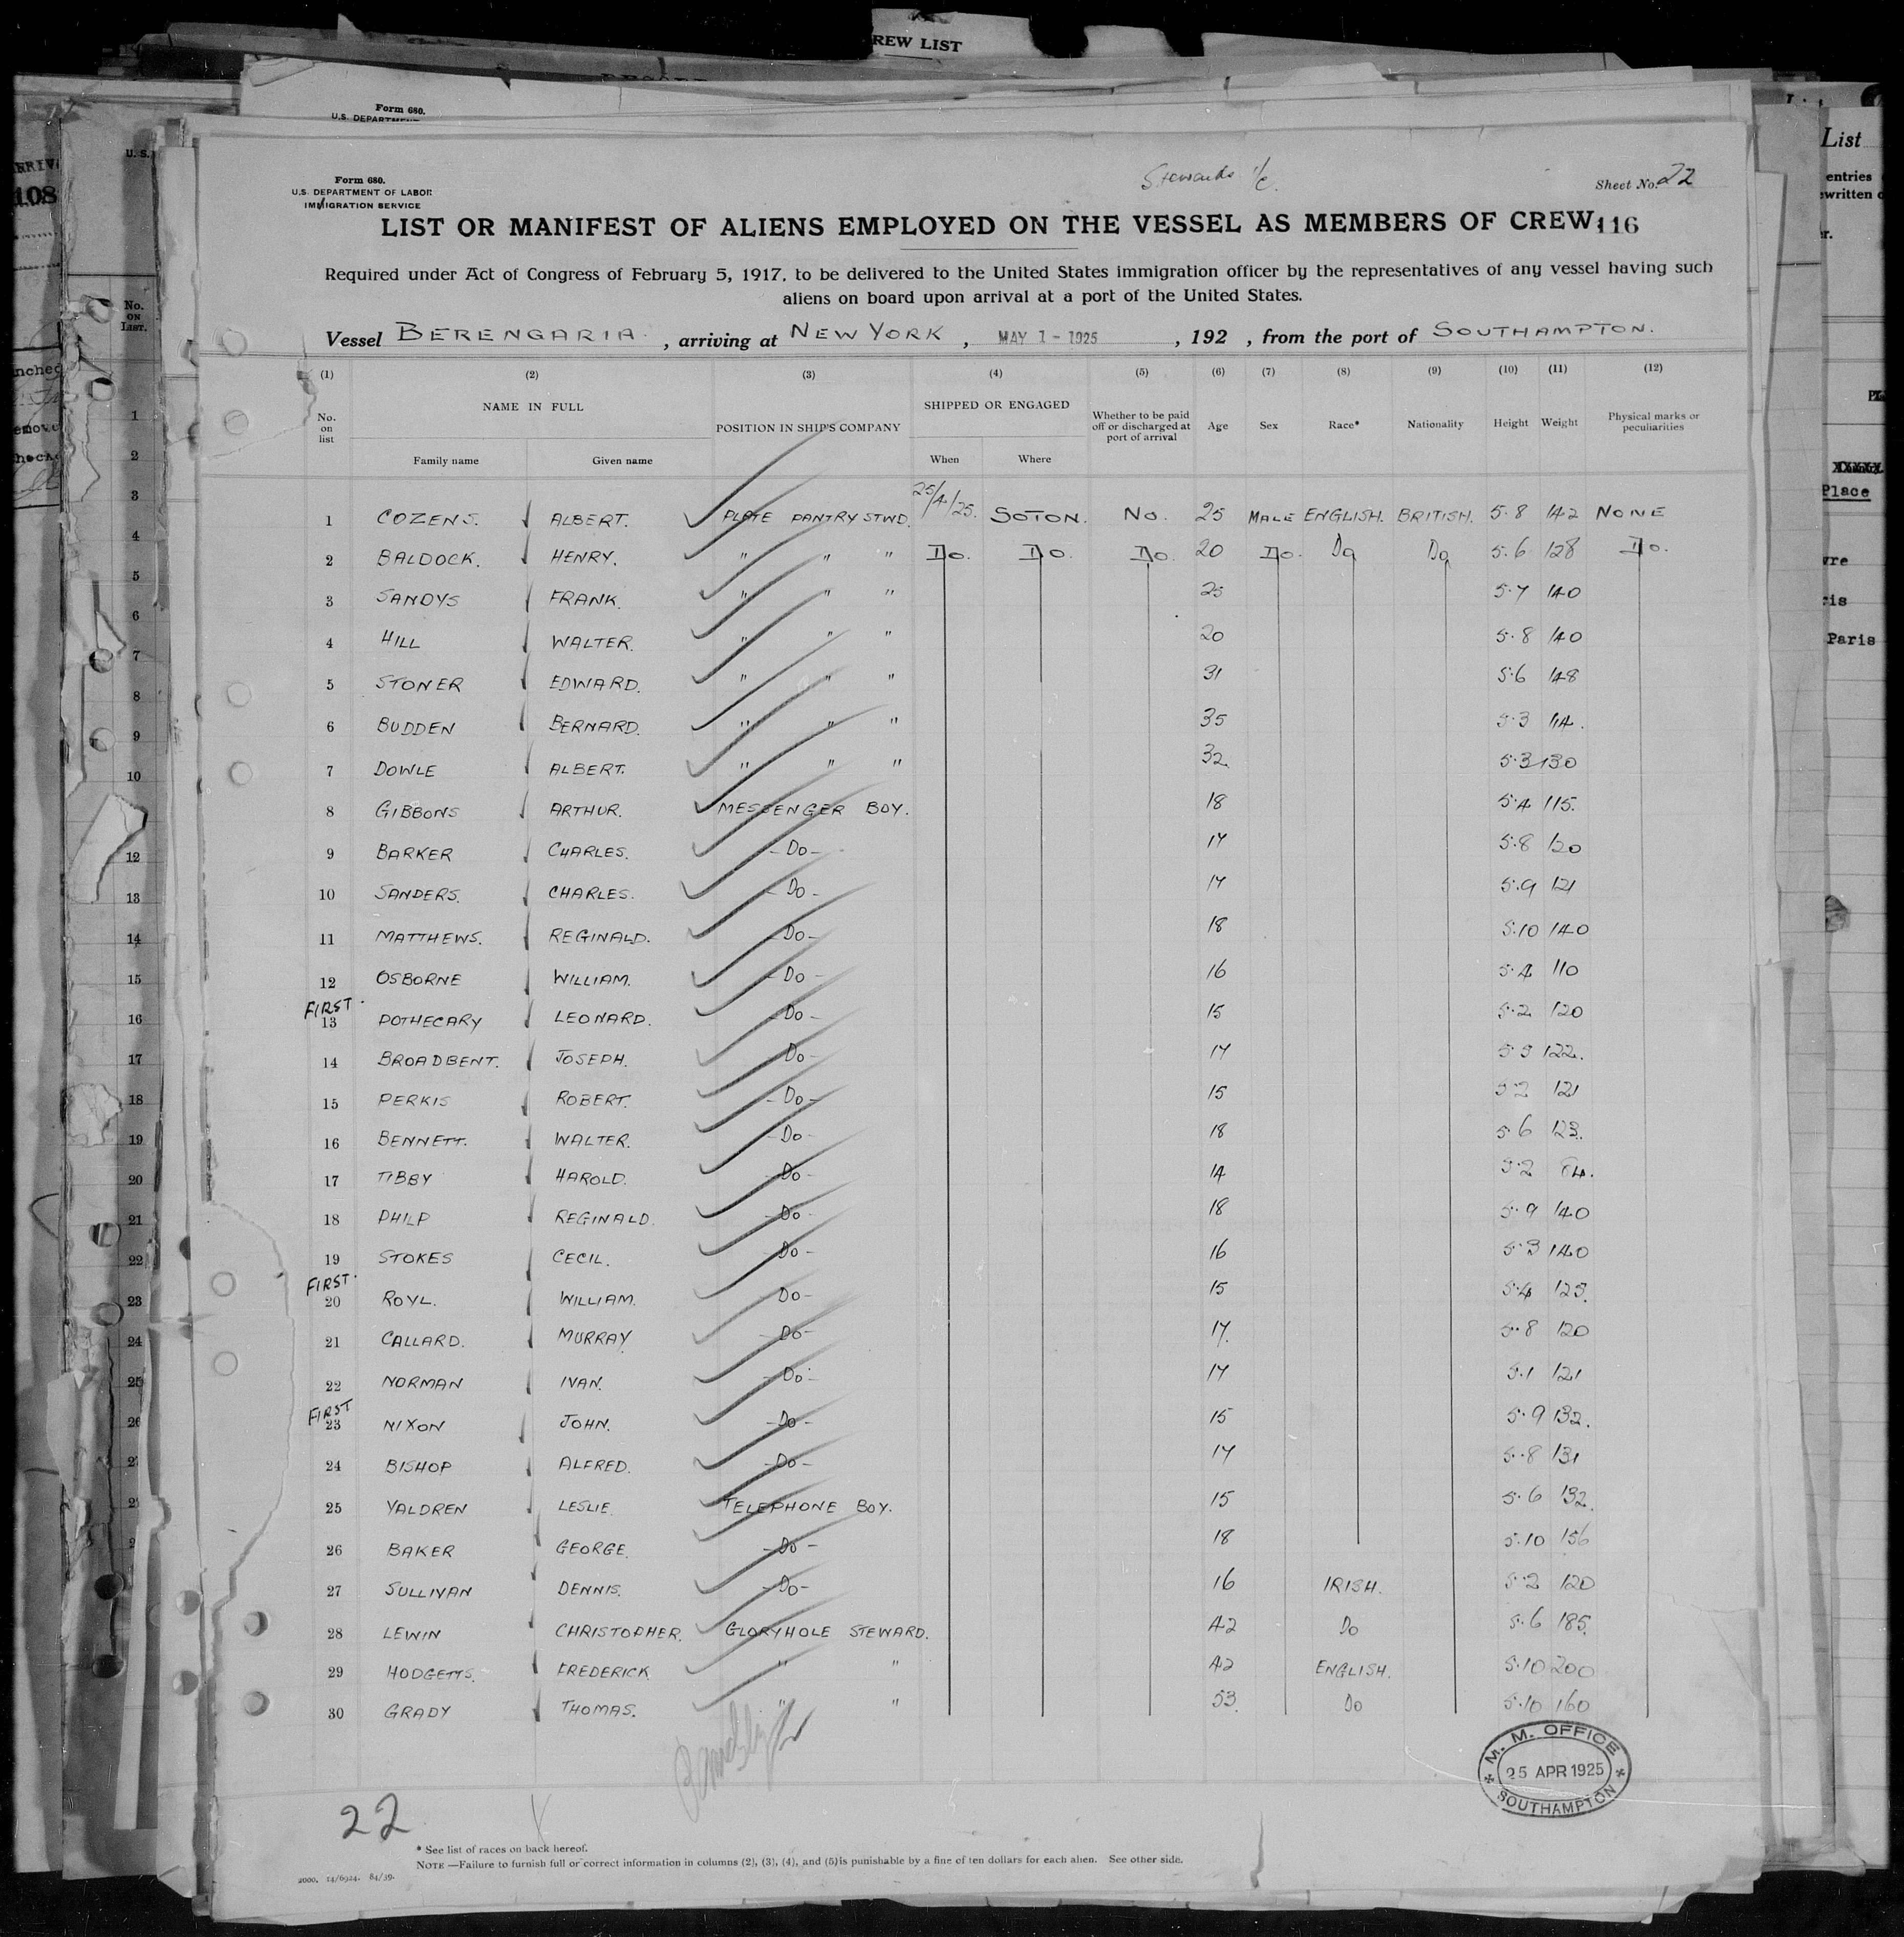 REW LIST
Form 680.
U.S. DEPARTM
Form 680.
U.S. DEPARTMENT OF LABOR
IMMIGRATION SERVICE
Stewards
Sheet No. 22
LIST OR MANIFEST OF ALIENS EMPLOYED ON THE VESSEL AS MEMBERS OF CREW 116
Required under Act of Congress of February 5, 1917, to be delivered to the United States immigration officer by the representatives of any vessel having such
aliens on board upon arrival at a port of the United States.
Vessel BERENGARIA, arriving at NEW YORK, MAY 1 - 1925, 192 , from the port of SOUTHAMPTON.
(1) (2) (3) (4) (5) (6) (7) (8) (9) (10) (11) (12)
No. on list NAME IN FULL POSITION IN SHIP'S COMPANY SHIPPED OR ENGAGED Whether to be paid off or discharged at port of arrival Age Sex Race* Nationality Height Weight Physical marks or peculiarities
Family name Given name When Where
1 COZENS. ALBERT. PLATE PANTRY STWD. 25/4/25. SOTON. NO. 25 MALE ENGLISH. BRITISH. 5.8 142 NONE
2 BALDOCK. HENRY. " " " Do. Do. Do. 20 Do. Do Do 5.6 128 Do.
3 SANDYS FRANK. " " " 25 5.7 140
4 HILL WALTER. " " " 20 5.8 140
5 STONER EDWARD. " " " 31 5.6 148
6 BUDDEN BERNARD. " " " 35 5.3 114.
7 DOWLE ALBERT. " " " 32. 5.3 130
8 GIBBONS ARTHUR. MESSENGER BOY. 18 5.4 115.
9 BARKER CHARLES. - Do - 17 5.8 120
10 SANDERS. CHARLES. - Do - 17 5.9 121
11 MATTHEWS. REGINALD. - Do - 18 5.10 140
12 OSBORNE WILLIAM. - Do - 16 5.4 110
FIRST
13 POTHECARY LEONARD. - Do - 15 5.2 120
14 BROADBENT. JOSEPH. Do - 17 5.5 122.
15 PERKIS ROBERT. - Do - 15 5.2 121
16 BENNETT. WALTER. - Do - 18 5.6 123.
17 TIBBY HAROLD. - Do - 14 5.2
18 PHILP REGINALD. - Do - 18 5.9 140
19 STOKES CECIL. - Do - 16 5.3 140
FIRST.
20 ROYL. WILLIAM. Do - 15 5.4 123.
21 CALLARD. MURRAY - Do - 17. 5.8 120
22 NORMAN IVAN. - Do - 17 5.1 121
FIRST
23 NIXON JOHN. - Do - 15 5.9 132.
24 BISHOP ALFRED. - Do - 17 5.8 131
25 YALDREN LESLIE. TELEPHONE BOY. 15 5.6 132.
26 BAKER GEORGE. - Do - 18 5.10 156
27 SULLIVAN DENNIS. - Do - 16 IRISH. 5.2 120
28 LEWIN CHRISTOPHER. GLORYHOLE STEWARD. 42 Do 5.6 185.
29 HODGETTS. FREDERICK " " 42 ENGLISH. 5.10 200
30 GRADY THOMAS. " " 53. Do 5.10 160
M. M. OFFICE
25 APR 1925
SOUTHAMPTON
22
* See list of races on back hereof.
NOTE.—Failure to furnish full or correct information in columns (2), (3), (4), and (5) is punishable by a fine of ten dollars for each alien. See other side.
2000. 14/6924. 84/39.
108
No.
ON
LIST.
1
2
3
4
5
6
7
8
9
10
12
13
14
15
16
17
18
19
20
21
22
23
24
25
26
List
entries
Place
Paris